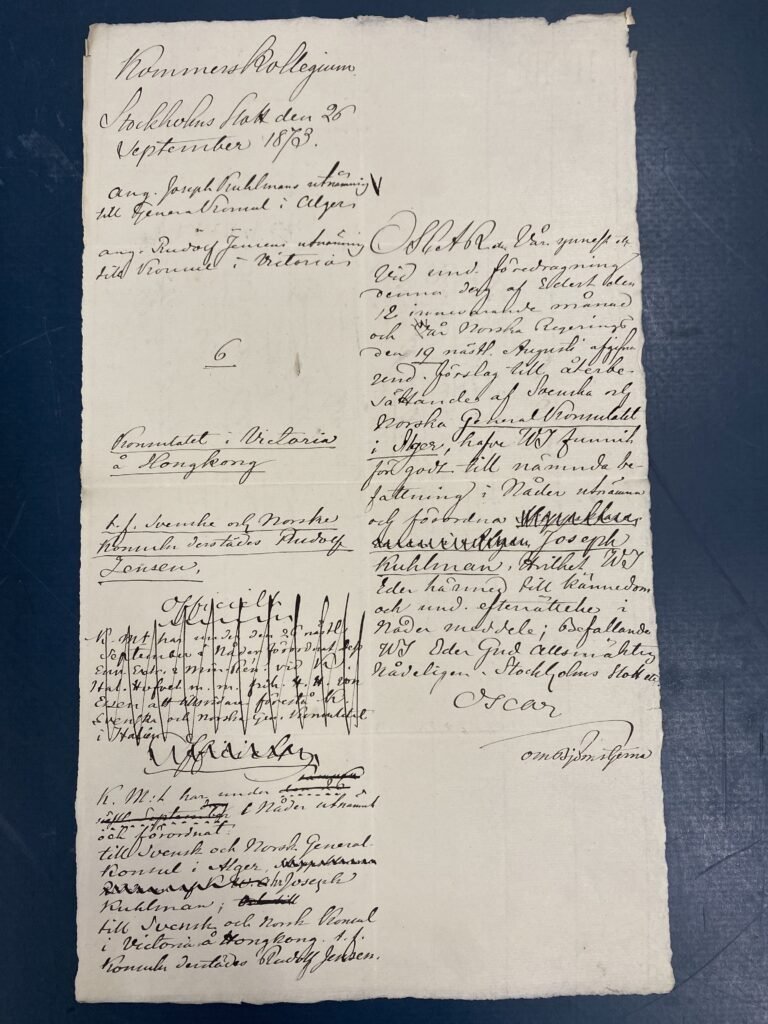 Kommerskollegium
Stockholms Slott den 26
September 1873.
ang. Joseph Kuhlmans utnämning
till General Konsul i Alger
ang. Rudolf Jensens utnämning
till Konsul i Victoria
6
Konsulatet i Victoria
å Hongkong
t.f. Svenske och Norske
Konsuln derstädes Rudolf
Jensen.
K. Mt har under den 26 nästl.
September i Nåder förordnat dess
Env. Extr. o Min. vid K.
Ital. Hofvet m. m. frih.
Essen att tillsvidare förestå K.
Svenska och Norska Gen. Konsulatet
i Italien
K. M:t har under
September i Nåder utnämnt
och förordnat:
till Svensk och Norsk General
Konsul i Alger
Joseph
Kuhlman; och till
till Svensk och Norsk Konsul
i Victoria å Hongkong t.f.
Konsuln derstädes Rudolf Jensen.
OSCAR Vår ynnest
Vid und. föredragning
denna dag af Edert den
12 innevarande månad
och Vår Norska Regerings
den 19 nästl. Augusti afgifna
und. förslag till återbe-
sättandet af Svenska och
Norska General Konsulatet
i Alger, hafve WJ funnit
för godt till nämnda be-
fattning i Nåder utnämna
och förordna
Joseph
Kuhlman. Hvilket WJ
Eder härmed till kännedom
och und. efterrättelse i
Nåder meddele; befallande
WJ Eder Gud Allsmäktig
Nådeligen. Stockholms Slott etc.
Oscar